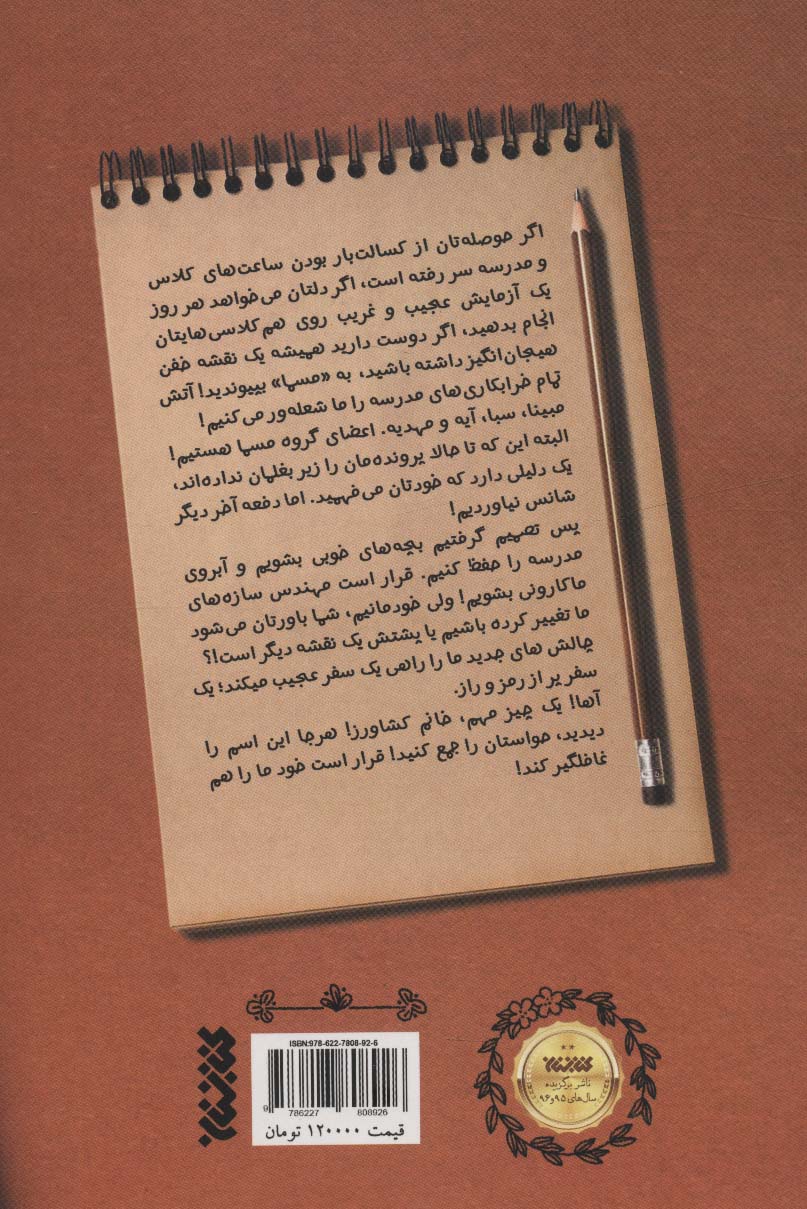 اگر حوصله‌تان از کسالت‌بار بودن ساعت‌های کلاس
و مدرسه سر رفته است، اگر دلتان می‌خواهد هر روز
یک آزمایش عجیب و غریب روی هم‌کلاسی‌هایتان
انجام بدهید، اگر دوست دارید همیشه یک نقشه خفن
هیجان‌انگیز داشته باشید، به «مسما» بپیوندید! آتش
تمام خرابکاری‌های مدرسه را ما شعله‌ور می‌کنیم!
مبینا، سبا، آیه و مهدیه. اعضای گروه مسما هستیم!
البته این که تا حالا پرونده‌مان را زیر بغلمان نداده‌اند،
یک دلیلی دارد که خودتان می‌فهمید. اما دفعه آخر دیگر
شانس نیاوردیم!
پس تصمیم گرفتیم بچه‌های خوبی بشویم و آبروی
مدرسه را حفظ کنیم. قرار است مهندس سازه‌های
ماکارونی بشویم! ولی خودمانیم، شما باورتان می‌شود
ما تغییر کرده باشیم یا پشتش یک نقشه دیگر است!؟
چالش های جدید ما را راهی یک سفر عجیب میکند؛ یک
سفر پر از رمز و راز.
آها! یک چیز مهم، خانم کشاورز! هرجا این اسم را
دیدید، حواستان را جمع کنید! قرار است خود ما را هم
غافلگیر کند!
کتابستان
ISBN:978-622-7808-92-6
9 786227 808926
قیمت ۱۲۰۰۰۰ تومان
کتابستان
ناشر برگزیده
سال‌های ۹۵ و ۹۶